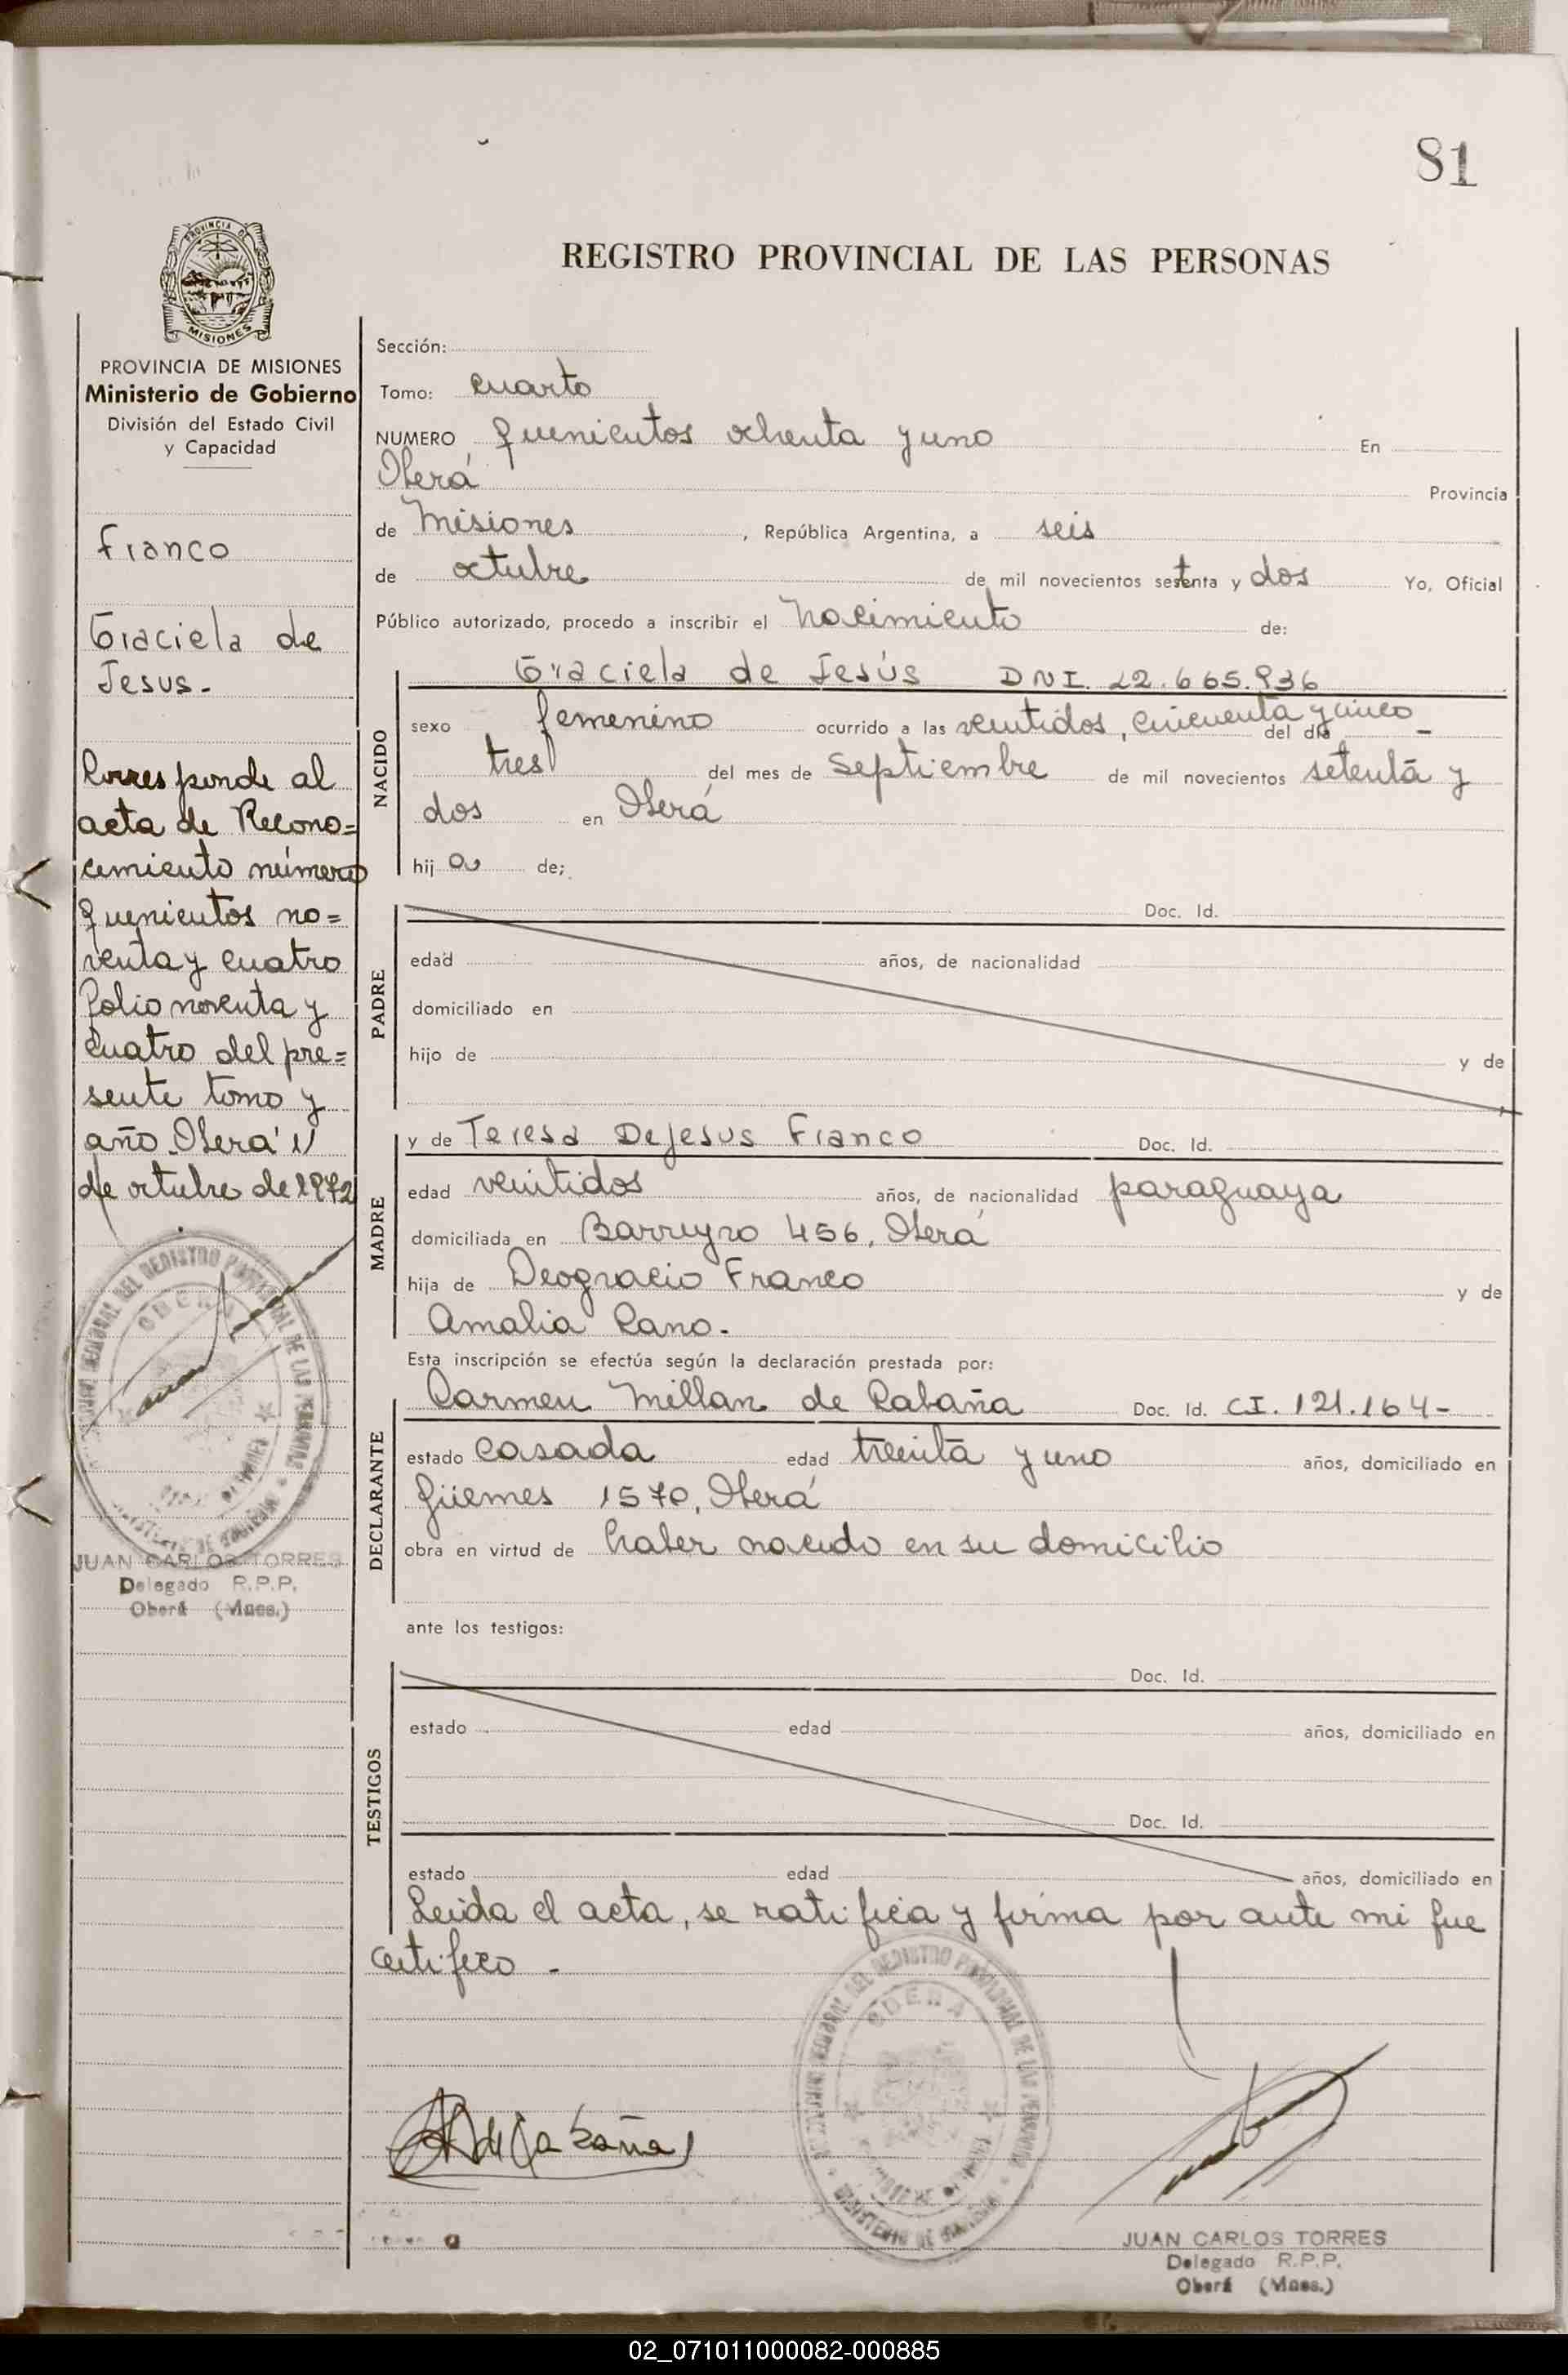 81
REGISTRO PROVINCIAL DE LAS PERSONAS
MISIONES
PROVINCIA DE MISIONES
Ministerio de Gobierno
División del Estado Civil
y Capacidad
Franco
Graciela de
Jesus.-
Corresponde al
acta de Recono=
cimiento número
quinientos no=
venta y cuatro
folio noventa y
cuatro del pre=
sente tomo y
año. Oberá 11
de octubre de 1972
JUAN CARLOS TORRES
Delegado R.P.P.
Oberá (Mnes.)
Sección:
Tomo: cuarto
NUMERO quinientos ochenta y uno En
Oberá Provincia
de Misiones, República Argentina, a seis
de octubre de mil novecientos setenta y dos Yo, Oficial
Público autorizado, procedo a inscribir el nacimiento de:
NACIDO
Graciela de Jesús DNI. 22.665.936
sexo femenino ocurrido a las veintidos, cincuenta y cinco - del día
tres del mes de Septiembre de mil novecientos setenta y
dos en Oberá
hij a de;
PADRE
Doc. Id.
edad años, de nacionalidad
domiciliado en
hijo de y de
MADRE
y de Teresa DeJesus Franco Doc. Id.
edad veintidos años, de nacionalidad paraguaya
domiciliada en Barreyro 456, Oberá
hija de Deogracio Franco y de
Amalia Cano.
Esta inscripción se efectúa según la declaración prestada por:
DECLARANTE
Carmen Millan de Cabaña Doc. Id. CI. 121.164-
estado casada edad treinta y uno años, domiciliado en
Güemes 1570, Oberá
obra en virtud de haber nacido en su domicilio
ante los testigos:
TESTIGOS
Doc. Id.
estado edad años, domiciliado en
Doc. Id.
estado edad años, domiciliado en
Leida el acta, se ratifica y firma por ante mi que
certifico -
de Cabaña
OBERA
JUAN CARLOS TORRES
Delegado R.P.P.
Oberá (Mnes.)
02_071011000082-000885